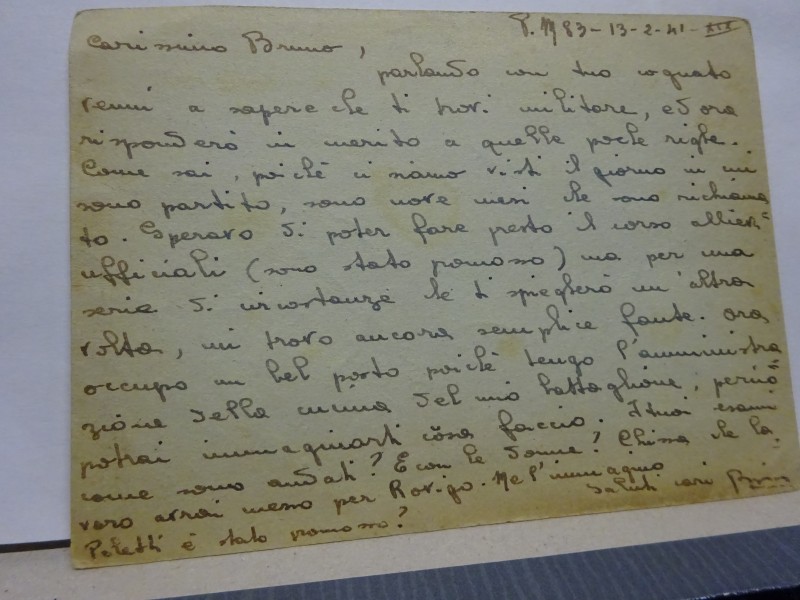 P.M 83-13-2-41-XIX
Carissimo Bruno,
parlando con tuo cognato
venni a sapere che ti trovi militare, ed ora
risponderò in merito a quelle poche righe.
Come sai, poichè ci siamo visti il giorno in cui
sono partito, sono nove mesi che sono richiama
to. Speravo di poter fare presto il corso allievi
ufficiali (sono stato promosso) ma per una
serie di circostanze che ti spiegherò un'altra
volta, mi trovo ancora semplice fante. Ora
occupo un bel posto poichè tengo l'amministra
zione della cucina del mio battaglione, perciò
potrai immaginarti cosa faccio. I tuoi esami
come sono andati? E con le donne? Chissà che la
voro avrai messo per Rovigo. Me l'immagino
Saluti cari
è stato promosso?